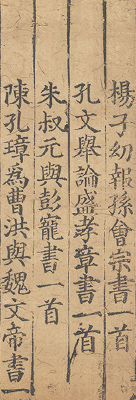 楊子幼報孫會宗書一首
孔文舉論盛孝章書一首
朱叔元與彭寵書一首
陳孔璋為曹洪與魏文帝書一